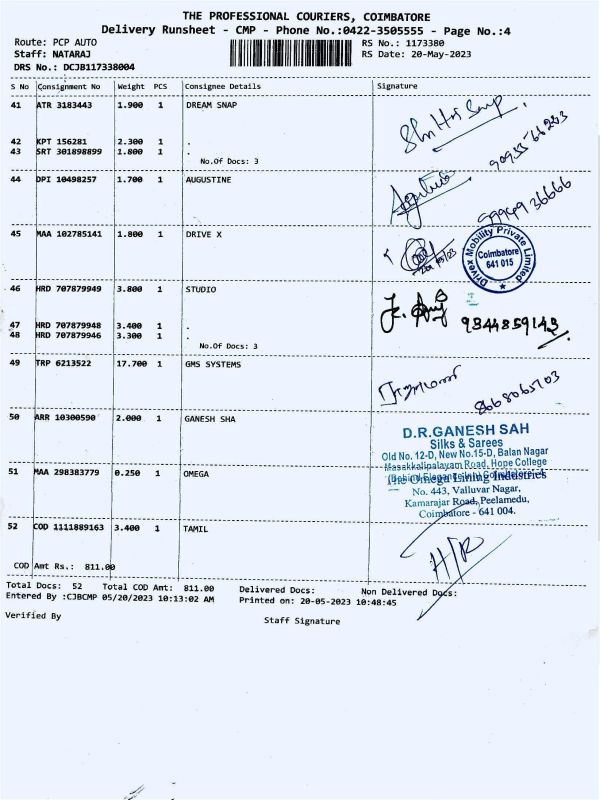 THE PROFESSIONAL COURIERS, COIMBATORE
Delivery Runsheet - CMP - Phone No.:0422-3505555 - Page No.:4
Route: PCP AUTO
RS No.: 1173380
Staff: NATARAJ
RS Date: 20-May-2023
DRS No.: DCJB117338004
S No Consignment No Weight PCS Consignee Details Signature
41 ATR 3183443 1.900 1 DREAM SNAP
42 KPT 156281 2.300 1 .
43 SRT 301898899 1.800 1 .
No.Of Docs: 3
90955 66283
44 DPI 10498257 1.700 1 AUGUSTINE
99949 36666
45 MAA 102785141 1.800 1 DRIVE X
Drivex Mobility Private Limited
Coimbatore
641 015
46 HRD 707879949 3.800 1 STUDIO
47 HRD 707879948 3.400 1 .
48 HRD 707879946 3.300 1 .
No.Of Docs: 3
9344859143
49 TRP 6213522 17.700 1 GMS SYSTEMS
8668065703
50 ARR 10300590 2.000 1 GANESH SHA
D.R.GANESH SAH
Silks & Sarees
Old No. 12-D, New No.15-D, Balan Nagar
Masakkalipalayam Road, Hope College
51 MAA 298383779 0.250 1 OMEGA
The Omega Lining Industries
No. 443, Valluvar Nagar,
Kamarajar Road, Peelamedu,
Coimbatore - 641 004.
52 COD 1111889163 3.400 1 TAMIL
H/R
COD Amt Rs.: 811.00
Total Docs: 52 Total COD Amt: 811.00 Delivered Docs: Non Delivered Docs:
Entered By :CJBCMP 05/20/2023 10:13:02 AM Printed on: 20-05-2023 10:48:45
Verified By
Staff Signature